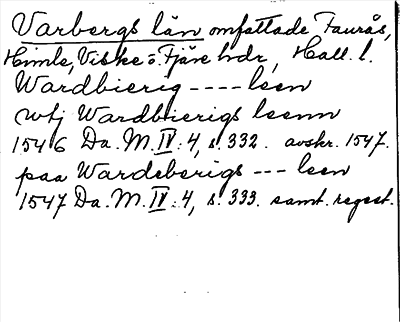 Varbergs län omfattade Faurås,
Himle, Viske o. Fjäre hdr, Hall. l.
Wardbierig ---- leen
utj Wardbierigs leenn
1546 Da. M. IV: 4, s. 332. avskr. 1547.
paa Wardeberigs --- leen
1547 Da. M. IV: 4, s. 333. samt. regest.